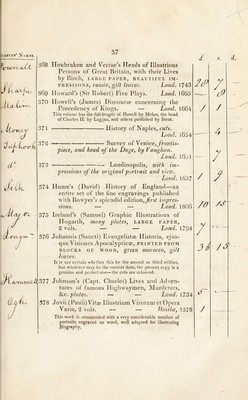 57
£ s. d.
368 Houbraken and Vertue's Heads of Illustrious
Persons of Great Britain, with their Lives
by Birch, LARGE PAPER, BEAUTIFUL IM-
PRESSIONS, russia, gilt leaves. Lond. 1743
369 Howard's (Sir Robert) Five Plays. Lond. 1665
370 Howell's (James) Discourse concerning the
Precedency of Kings. — Lond. 1664
This volume has the full-length of Howell by Melan, the head
of Charles II. by Loggan, and others published by Stent.
371 ——— History of Naples, cuts.
Lond. 1654
372 ——— Survey of Venice, frontis-
piece, and head of the Doge, by Vaughan.
Lond. 1651
373 ——— Londinopolis, with im-
pressions of the original portrait and view.
Lond. 1657
374 Hume's (David) History of England—an
entire set of the fine engravings published
with Bowyer's splendid edition, first impres-
sions. — — Lond. 1806
375 Ireland's (Samuel) Graphic Illustrations of
Hogarth, many plates, LARGE PAPER,
2 vols. — — Lond. 1794
376 Johannis (Sancti) Evangelistæ Historia, ejus-
que Visiones Apocalypticæ, PRINTED FROM
BLOCKS OF WOOD, green morocco, gilt
leaves.
It is not certain whether this be the second or third edition,
but whatever may be the correct date, the present copy is a
genuine and perfect one—the cuts are coloured.
377 Johnson's (Capt. Charles) Lives and Adven-
tures of famous Highwaymen, Murderers,
&c. plates. — — Lond. 1734
378 Jovii (Paulii) Vitæ Illustrium Virorum et Opera
Varia, 2 vols. — — Basilæ, 1578
This work is ornamented with a very considerable number of
portraits engraved on wood, well adapted for illustrating
Biography.